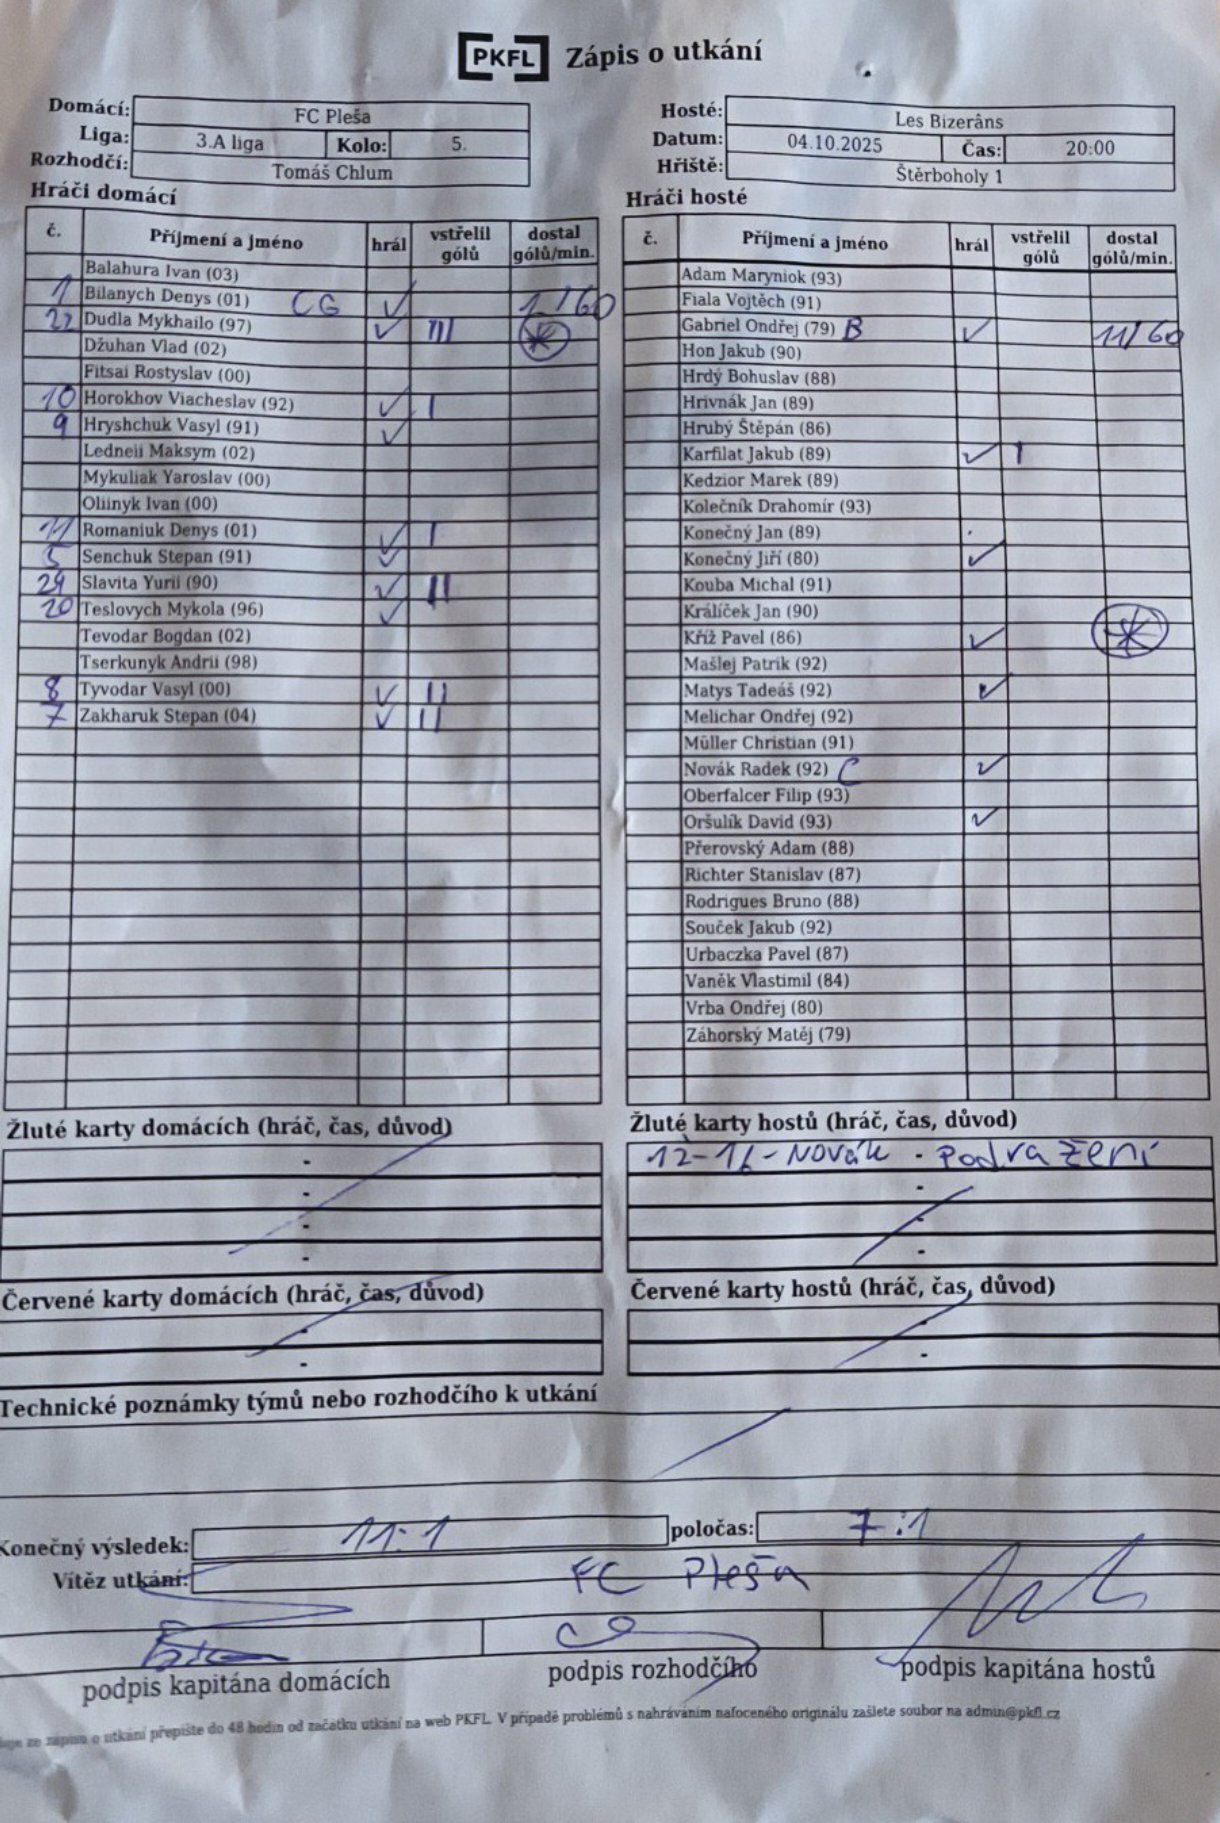 PKFL Zápis o utkání
Domácí: FC Pleša
Liga: 3.A liga Kolo: 5.
Rozhodčí: Tomáš Chlum
Hosté: Les Bizerâns
Datum: 04.10.2025 Čas: 20:00
Hřiště: Štěrboholy 1
Hráči domácí
č. Příjmení a jméno hrál vstřelil gólů dostal gólů/min.
Balahura Ivan (03)
1 Bilanych Denys (01) CG ✓ 1/60
22 Dudla Mykhailo (97) ✓ III
Džuhan Vlad (02)
Fitsai Rostyslav (00)
10 Horokhov Viacheslav (92) ✓ I
9 Hryshchuk Vasyl (91) ✓
Ledneii Maksym (02)
Mykuliak Yaroslav (00)
Oliinyk Ivan (00)
11 Romaniuk Denys (01) ✓ I
5 Senchuk Stepan (91) ✓
29 Slavita Yurii (90) ✓ II
20 Teslovych Mykola (96) ✓
Tevodar Bogdan (02)
Tserkunyk Andrii (98)
8 Tyvodar Vasyl (00) ✓ II
7 Zakharuk Stepan (04) ✓ II
Hráči hosté
č. Příjmení a jméno hrál vstřelil gólů dostal gólů/min.
Adam Maryniok (93)
Fiala Vojtěch (91)
Gabriel Ondřej (79) B ✓ 11/60
Hon Jakub (90)
Hrdý Bohuslav (88)
Hrivnák Jan (89)
Hrubý Štěpán (86)
Karfilat Jakub (89) ✓ I
Kedzior Marek (89)
Kolečník Drahomír (93)
Konečný Jan (89)
Konečný Jiří (80) ✓
Kouba Michal (91)
Králíček Jan (90)
Kříž Pavel (86) ✓
Mašlej Patrik (92)
Matys Tadeáš (92) ✓
Melichar Ondřej (92)
Müller Christian (91)
Novák Radek (92) C ✓
Oberfalcer Filip (93)
Oršulík David (93) ✓
Přerovský Adam (88)
Richter Stanislav (87)
Rodrigues Bruno (88)
Souček Jakub (92)
Urbaczka Pavel (87)
Vaněk Vlastimil (84)
Vrba Ondřej (80)
Záhorský Matěj (79)
Žluté karty domácích (hráč, čas, důvod)
-
-
-
-
Žluté karty hostů (hráč, čas, důvod)
12-16-Novák - Podražení
-
-
-
Červené karty domácích (hráč, čas, důvod)
-
-
Červené karty hostů (hráč, čas, důvod)
-
-
Technické poznámky týmů nebo rozhodčího k utkání
Konečný výsledek: 11:1 poločas: 7:1
Vítěz utkání: FC Pleša
podpis kapitána domácích podpis rozhodčího podpis kapitána hostů
ze zápisu o utkání přepište do 48 hodin od začátku utkání na web PKFL. V případě problémů s nahráváním nafoceného originálu zašlete soubor na admin@pkfl.cz